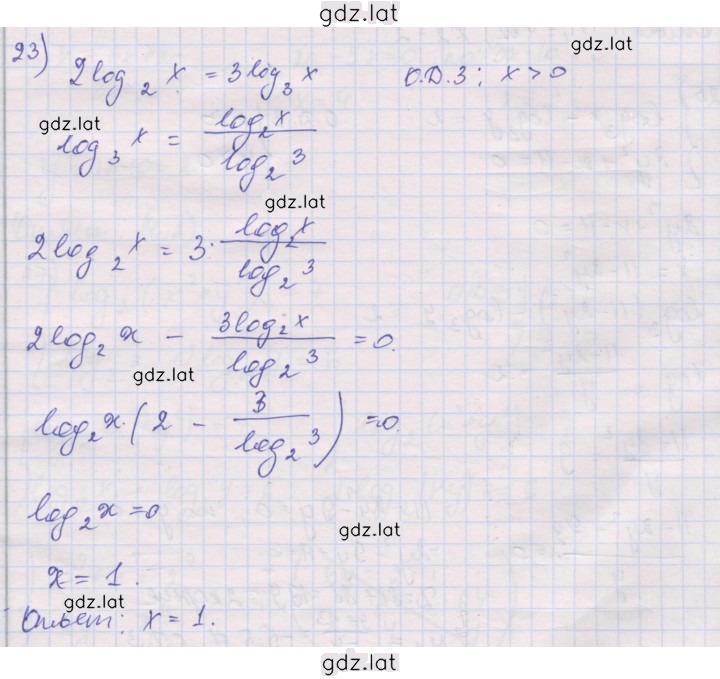 gdz.lat
23) 2log₂x = 3log₃x   О.Д.З; x > 0
gdz.lat
gdz.lat
log₃x = log₂x / log₂3
gdz.lat
2log₂x = 3 · log₂x / log₂3
2log₂x − 3log₂x / log₂3 = 0.
gdz.lat
log₂x · (2 − 3 / log₂3) = 0.
log₂x = 0
gdz.lat
x = 1.
gdz.lat
Ответ: x = 1.
gdz.lat